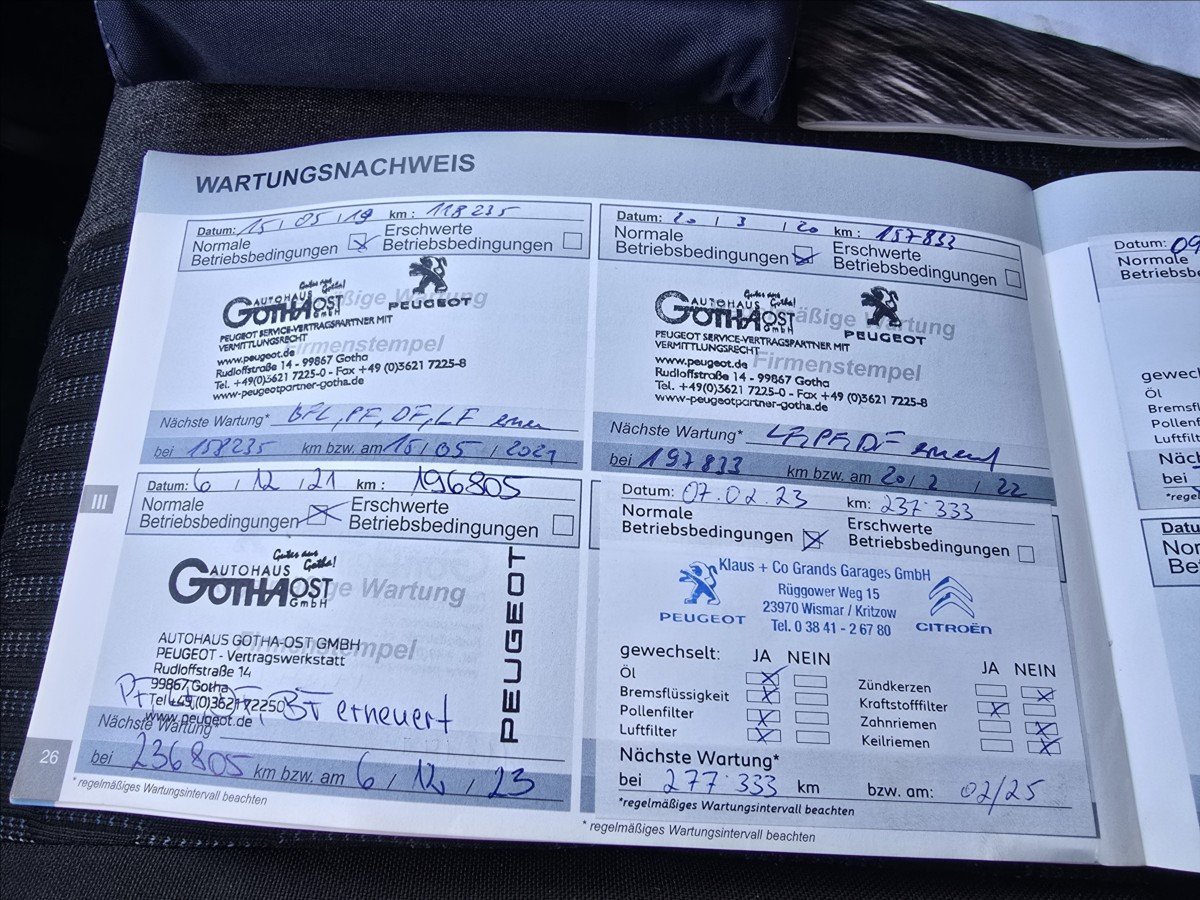 WARTUNGSNACHWEIS
Datum: 15 / 05 / 19 km : 118235
Normale Betriebsbedingungen
Erschwerte Betriebsbedingungen
Gutes aus Gotha!
AUTOHAUS
GOTHA OST
GmbH
PEUGEOT
PEUGEOT SERVICE-VERTRAGSPARTNER MIT
VERMITTLUNGSRECHT
www.peugeot.de
Rudloffstraße 14 - 99867 Gotha
Tel. +49(0)3621 7225-0 - Fax +49 (0)3621 7225-8
www-peugeotpartner-gotha.de
Firmenstempel
Nächste Wartung* BFL, PF, DF, LF
bei 158235 km bzw. am 15 / 05 / 2021
Datum: 20 / 3 / 20 km : 157833
Normale Betriebsbedingungen
Erschwerte Betriebsbedingungen
Gutes aus Gotha!
AUTOHAUS
GOTHA OST
GmbH
PEUGEOT
Wartung
PEUGEOT SERVICE-VERTRAGSPARTNER MIT
VERMITTLUNGSRECHT
www.peugeot.de
Rudloffstraße 14 - 99867 Gotha
Tel. +49(0)3621 7225-0 - Fax +49 (0)3621 7225-8
www-peugeotpartner-gotha.de
Firmenstempel
Nächste Wartung* LF, PF, DF erneuert
bei 197833 km bzw. am 20 / 2 / 22
III
Datum: 6 / 12 / 21 km : 196805
Normale Betriebsbedingungen
Erschwerte Betriebsbedingungen
Gutes aus Gotha!
AUTOHAUS
GOTHA OST
GmbH
PEUGEOT
Wartung
Firmenstempel
AUTOHAUS GOTHA-OST GMBH
PEUGEOT - Vertragswerkstatt
Rudloffstraße 14
99867 Gotha
Tel +49 (0)3621 72250
www.peugeot.de
BF erneuert
Nächste Wartung*
bei 236805 km bzw. am 6 / 12 / 23
* regelmäßiges Wartungsintervall beachten
26
Datum: 07.02.23 km: 237.333
Normale Betriebsbedingungen
Erschwerte Betriebsbedingungen
Klaus + Co Grands Garages GmbH
Rüggower Weg 15
23970 Wismar / Kritzow
Tel. 0 38 41 - 2 67 80
PEUGEOT
CITROËN
gewechselt: JA NEIN
Öl
Bremsflüssigkeit
Pollenfilter
Luftfilter
JA NEIN
Zündkerzen
Kraftstofffilter
Zahnriemen
Keilriemen
Nächste Wartung*
bei 277.333 km bzw. am: 02/25
*regelmäßiges Wartungsintervall beachten
* regelmäßiges Wartungsintervall beachten
Datum: 09
Normale
gewechs
Öl
Bremsflüs
Pollenfilte
Luftfilter
Näch
bei
*rege
Datum: